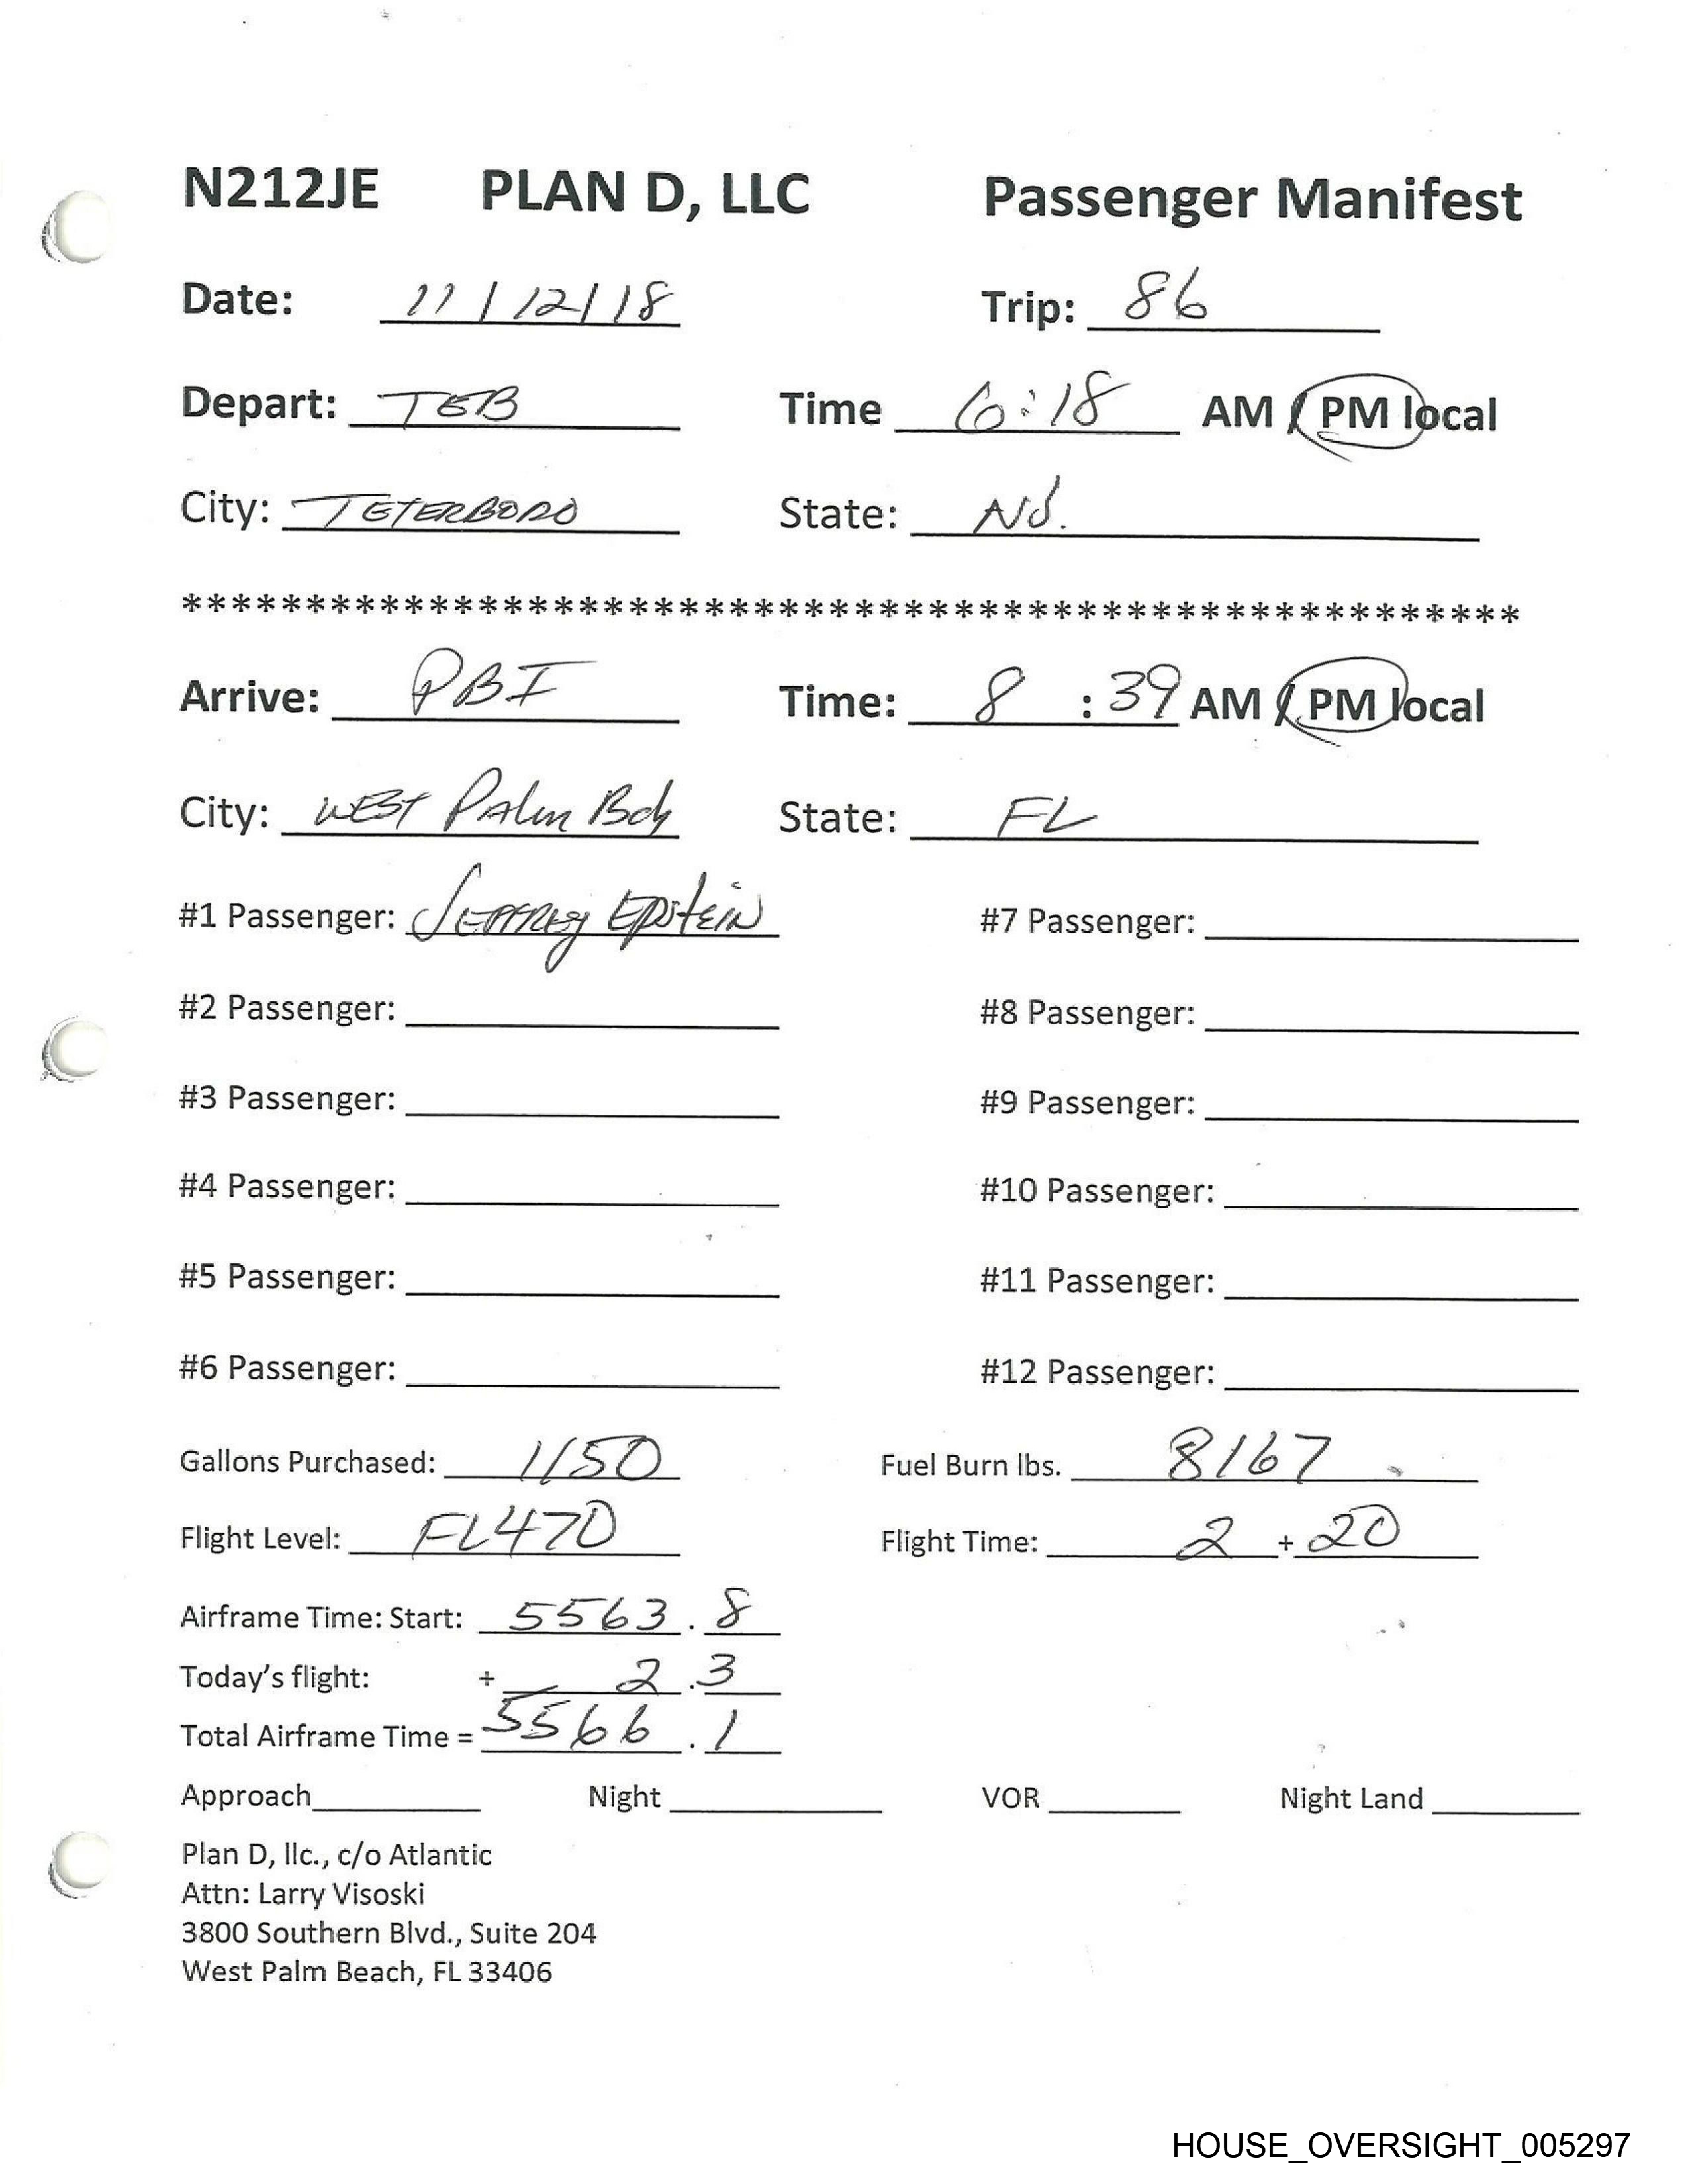 N212JE PLAN D, LLC Passenger Manifest
Date: 11/12/18 Trip: 86
Depart: TEB Time 6:18 AM / PM local
City: TETERBORO State: NJ.
******************************************************
Arrive: PBI Time: 8 : 39 AM / PM local
City: WEST PALM Bch State: FL
#1 Passenger: JEFFREY EPSTEIN #7 Passenger:
#2 Passenger: #8 Passenger:
#3 Passenger: #9 Passenger:
#4 Passenger: #10 Passenger:
#5 Passenger: #11 Passenger:
#6 Passenger: #12 Passenger:
Gallons Purchased: 1150 Fuel Burn lbs. 8167
Flight Level: FL470 Flight Time: 2 + 20
Airframe Time: Start: 5563 . 8
Today's flight: + 2 . 3
Total Airframe Time = 5566 . 1
Approach Night VOR Night Land
Plan D, llc., c/o Atlantic
Attn: Larry Visoski
3800 Southern Blvd., Suite 204
West Palm Beach, FL 33406
HOUSE_OVERSIGHT_005297